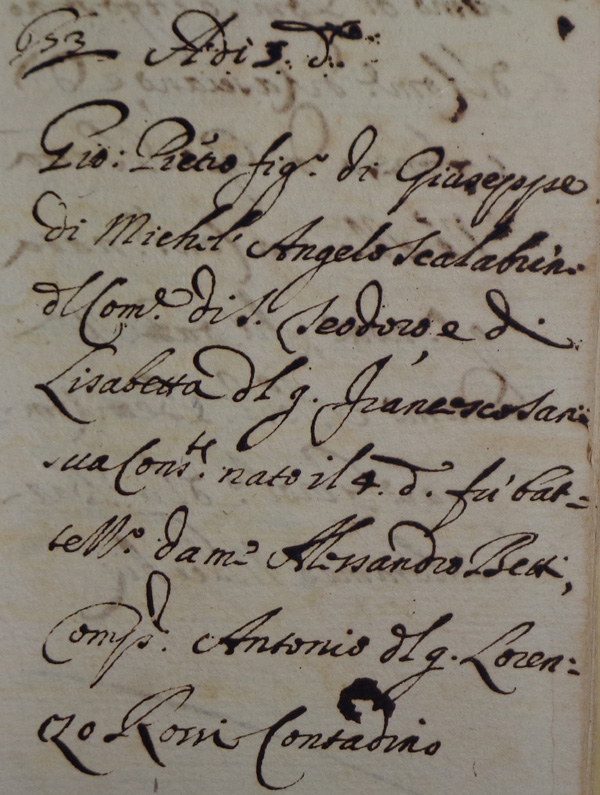 653 Adi 5. d.º
Gio: Pietro fig.º di Giuseppe
di Michel' Angelo Scalabrin
dl Com.e di S. Teodoro, e di
Lisabetta dl q. Francesco San
sua Cons.te nato il 4. d.º fù bat=
te.º da me Alessandro Betti,
Comp.e Antonio dl q. Loren=
zo Rossi Contadino